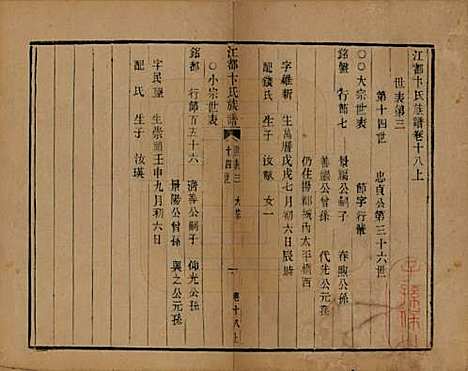 江都卞氏族譜卷十八上
世表第三
第十四世 忠貞公第三十六世
〇〇大宗世表 節字行輩
銘盤 行節七 景福公嗣子 春煦公孫
善繼公曾孫 代先公元孫
仍住揚郡城內太平橋西
字維新 生萬曆戊戌七月初六日辰時
配錢氏 生子汝 女一
江都卞氏族譜
世表三
十四世
大宗
一
卷十八上
〇小宗世表
銘都 行節百五十六 濟善公嗣子 仰光公孫
景陽公曾孫 興之公元孫
字民 生崇禎壬申九月初六日
配 氏 生子 汝瑛